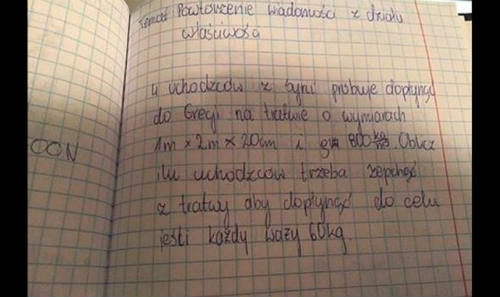 Temat: Powtórzenie wiadomości z działu
właściwości
4 uchodźców z Syrii próbuje dopłynąć
do Grecji na tratwie o wymiarach
1m x 2m x 20cm i g= 800 kg/m³. Oblicz
ilu uchodźców trzeba zepchnąć
z tratwy aby dopłynąć do celu
jeśli każdy waży 60kg.
OON